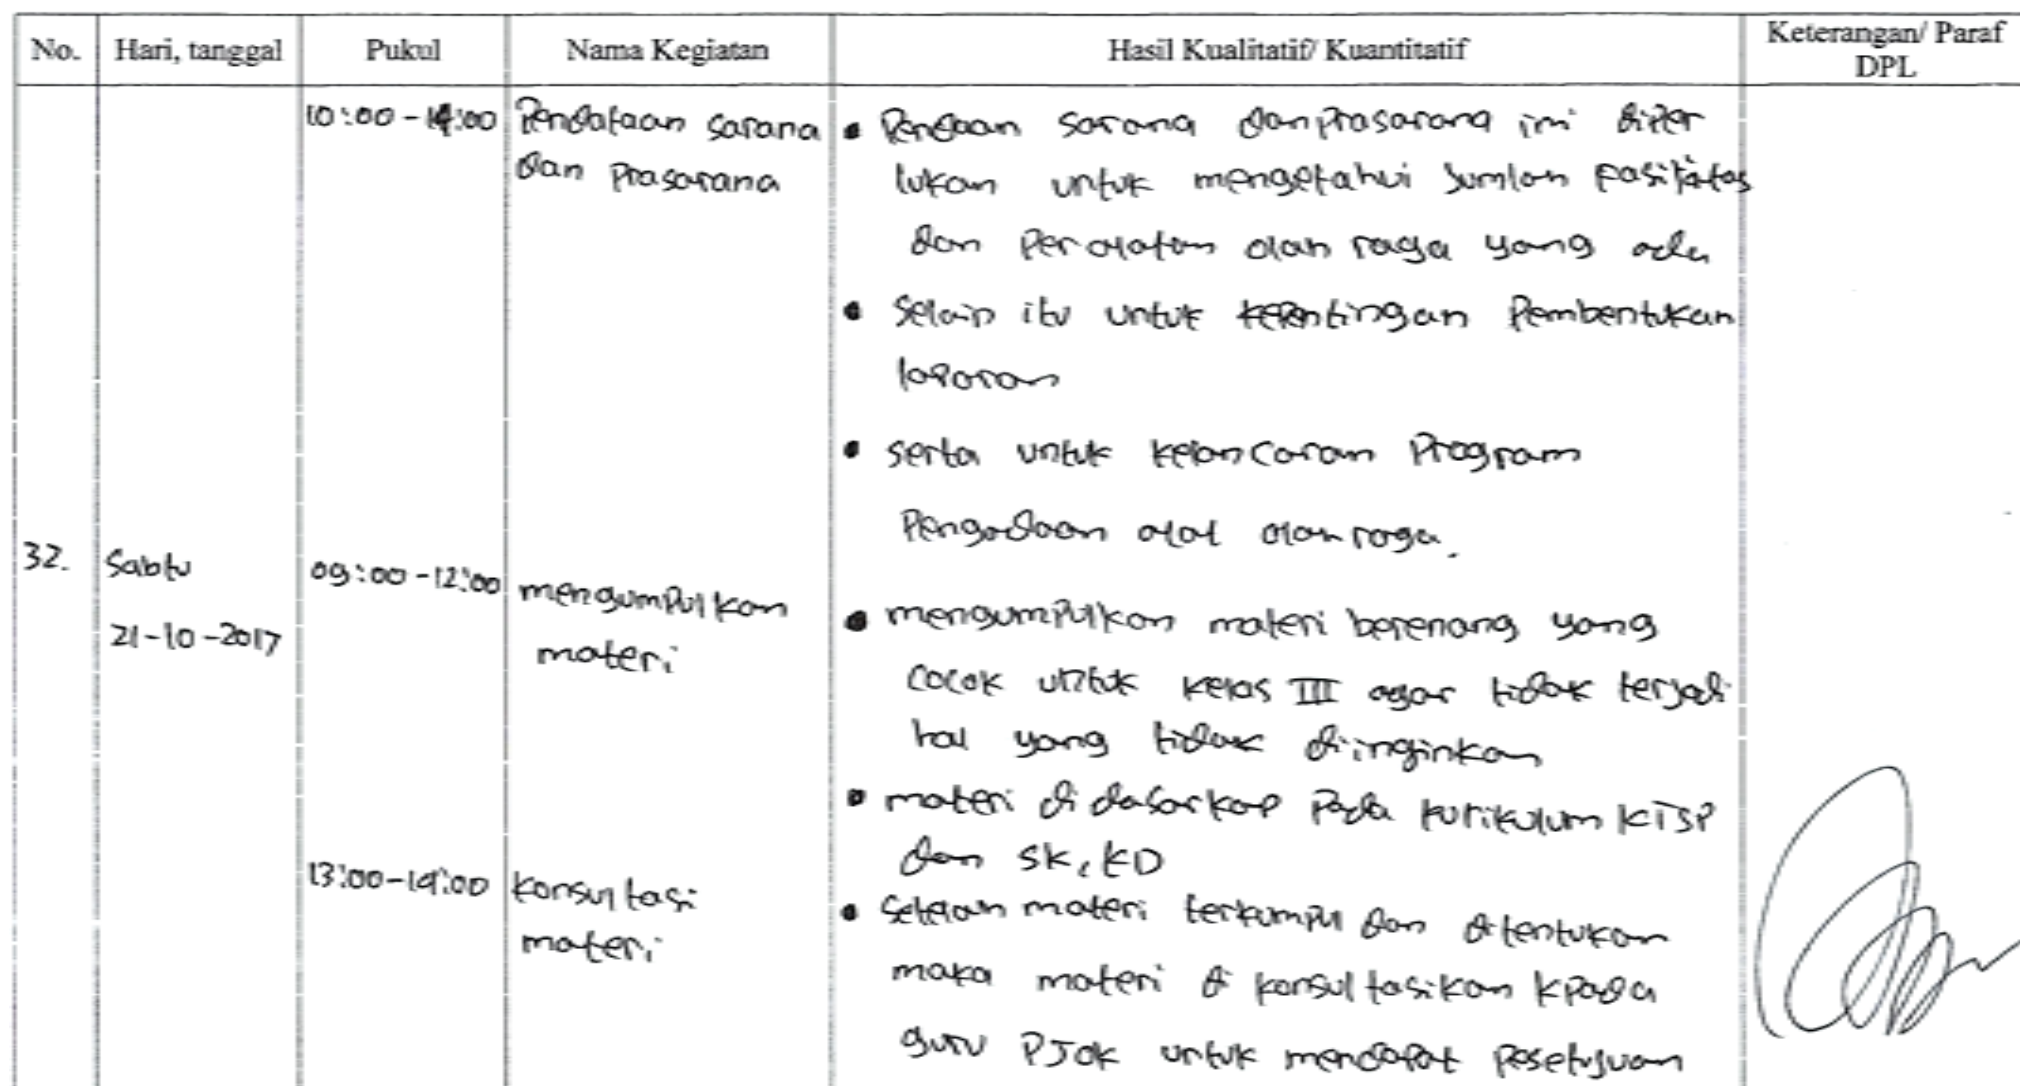 No. Hari, tanggal Pukul Nama Kegiatan Hasil Kualitatif/ Kuantitatif Keterangan/ Paraf DPL
10:00 - 14:00 Pendataan sarana dan Prasarana
• Pendaan sarana dan prasarana ini diper
lukan untuk mengetahui Jumlah pasilitas
dan Peralatan olah raga yang ada
• Selain itu untuk kepentingan Pembentukan
laporan
• serta untuk kelancaran Program
Pengadaan alat olah raga.
32. Sabtu
21-10-2017
09:00 - 12:00 mengumpulkan
materi
• mengumpulkan materi berenang yang
cocok untuk kelas III agar tidak terjadi
hal yang tidak diinginkan
• materi di dasarkap pada kurikulum KTSP
dan SK, KD
13:00 - 14:00 konsultasi
materi
• Setelah materi terkumpul dan ditentukan
maka materi di konsultasikan kpada
guru PJOK untuk mendapat posetujuan